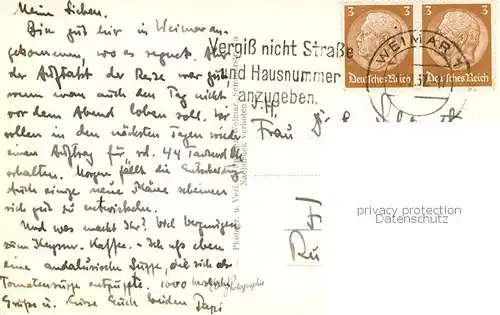 Meine Lieben.
Bin gut hier in Weimar an-
gekommen, wo es regnet. Aber
der Auftakt der Reise war gut
wenn man auch den Tag nicht
vor dem Abend loben soll. Wir
sollen in den nächsten Tagen wieder
einen Auftrag für rd. 44 Tausend
erhalten. Morgen fällt die Entscheidung
Auch einige neue Pläne scheinen
sich gut zu entwickeln.
Und was macht Ihr? Viel Vergnügen
zum Kaffee. - Ich aß eben
eine andalusische Suppe, die sich als
Tomatensuppe entpuppte. 1000 herzliche
Grüße u. Küsse Euch beiden Papi
Vergiß nicht Straße
und Hausnummer
anzugeben.
WEIMAR 1
3 3
Deutsches Reich Deutsches Reich
Frau
Nachdruck verboten
Photographie
privacy protection
Datenschutz